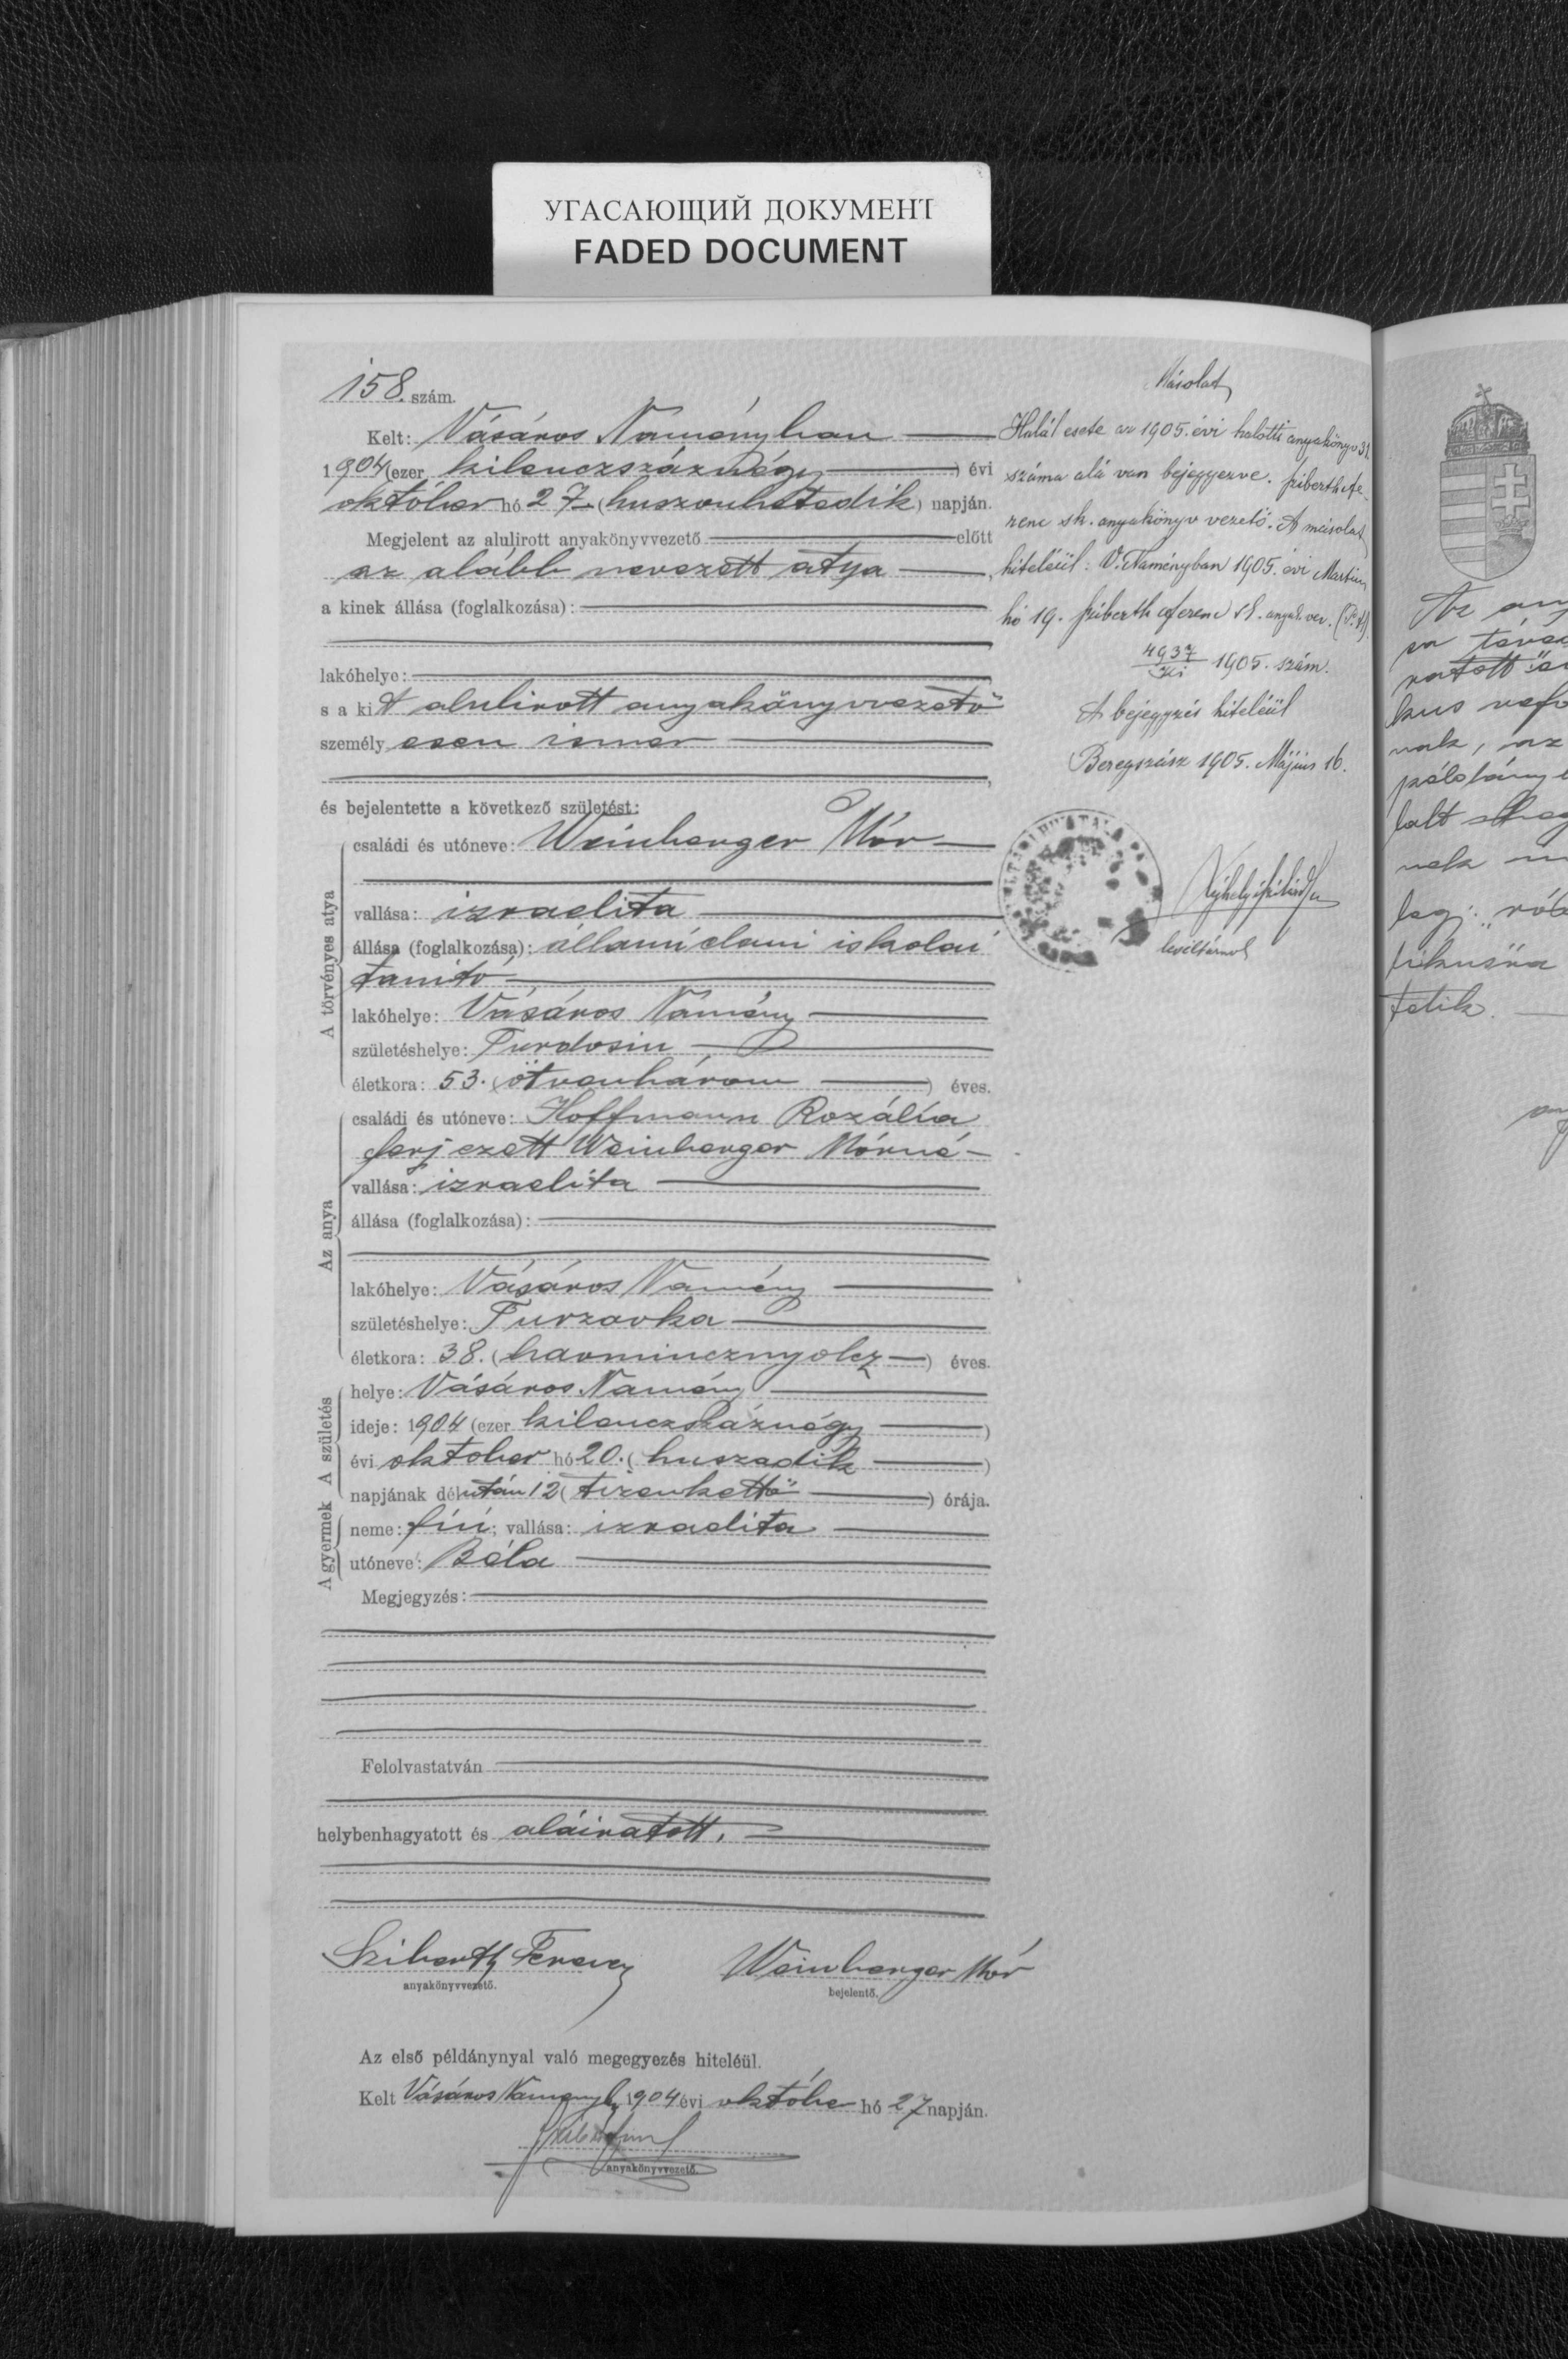 УГАСАЮЩИЙ ДОКУМЕНТ
FADED DOCUMENT
158. szám.
Kelt: Vásáros Naményban
1904 (ezer kilenczszáznégy) évi
október hó 27 (huszonhetedik) napján.
Megjelent az alulirott anyakönyvvezető előtt
az alább nevezett atya
a kinek állása (foglalkozása):
lakóhelye:
s a kit alulirott anyakönyvvezető
személyesen ismer
és bejelentette a következő születést:
A törvényes atya
családi és utóneve: Weinberger Mór
vallása: izraelita
állása (foglalkozása): állami elemi iskolai
tanitó
lakóhelye: Vásáros Namény
születéshelye: Turdosin
életkora: 53. (ötvenhárom) éves.
Az anya
családi és utóneve: Hoffmann Rozália
férjezett Weinberger Mórné
vallása: izraelita
állása (foglalkozása):
lakóhelye: Vásáros Namény
születéshelye: Turzovka
életkora: 38. (harmincznyolcz) éves.
A születés
helye: Vásáros Namény
ideje: 1904 (ezer kilenczszáznégy)
évi október hó 20. (huszadik)
napjának délután 12 (tizenkettő) órája.
A gyermek
neme: fiú; vallása: izraelita
utóneve: Béla
Megjegyzés:
Felolvastatván
helybenhagyatott és aláiratott.
Sziberth Ferencz
anyakönyvvezető.
Weinberger Mór
bejelentő.
Az első példánynyal való megegyezés hiteléül.
Kelt Vásáros Namény 1904 évi októbe hó 27 napján.
anyakönyvvezető.
Másolat
Halál esete az 1905. évi halotti anyakönyv 31
száma alá van bejegyezve. Sziberth Fe-
renc sk. anyakönyv vezető. A másolat
hiteléül: V. Naményban 1905. évi Martius
hó 19. Sziberth Ferenc sk. anyak. vez. (P. H.)
4937 1905. szám.
A bejegyzés hiteléül
Beregszász 1905. Május 16.
levéltárnok